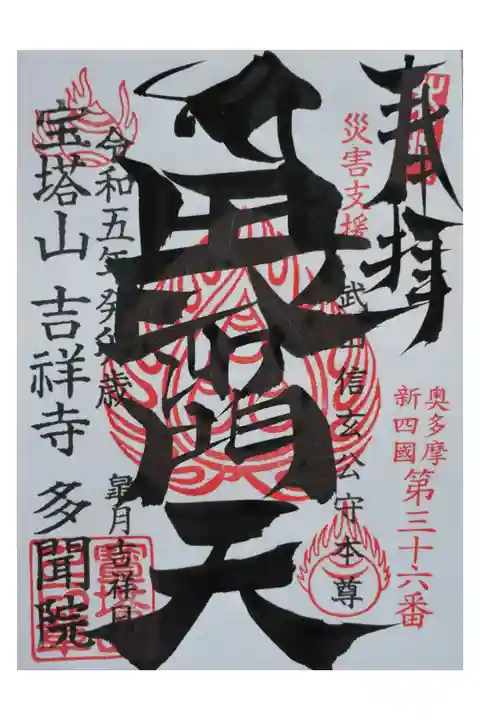 奉拝
災害支援
奥多摩
新四國
第三十六番
武田信玄公守本尊
毘沙門天
令和五年癸卯歳
皐月吉祥日
宝塔山 吉祥寺 多聞院